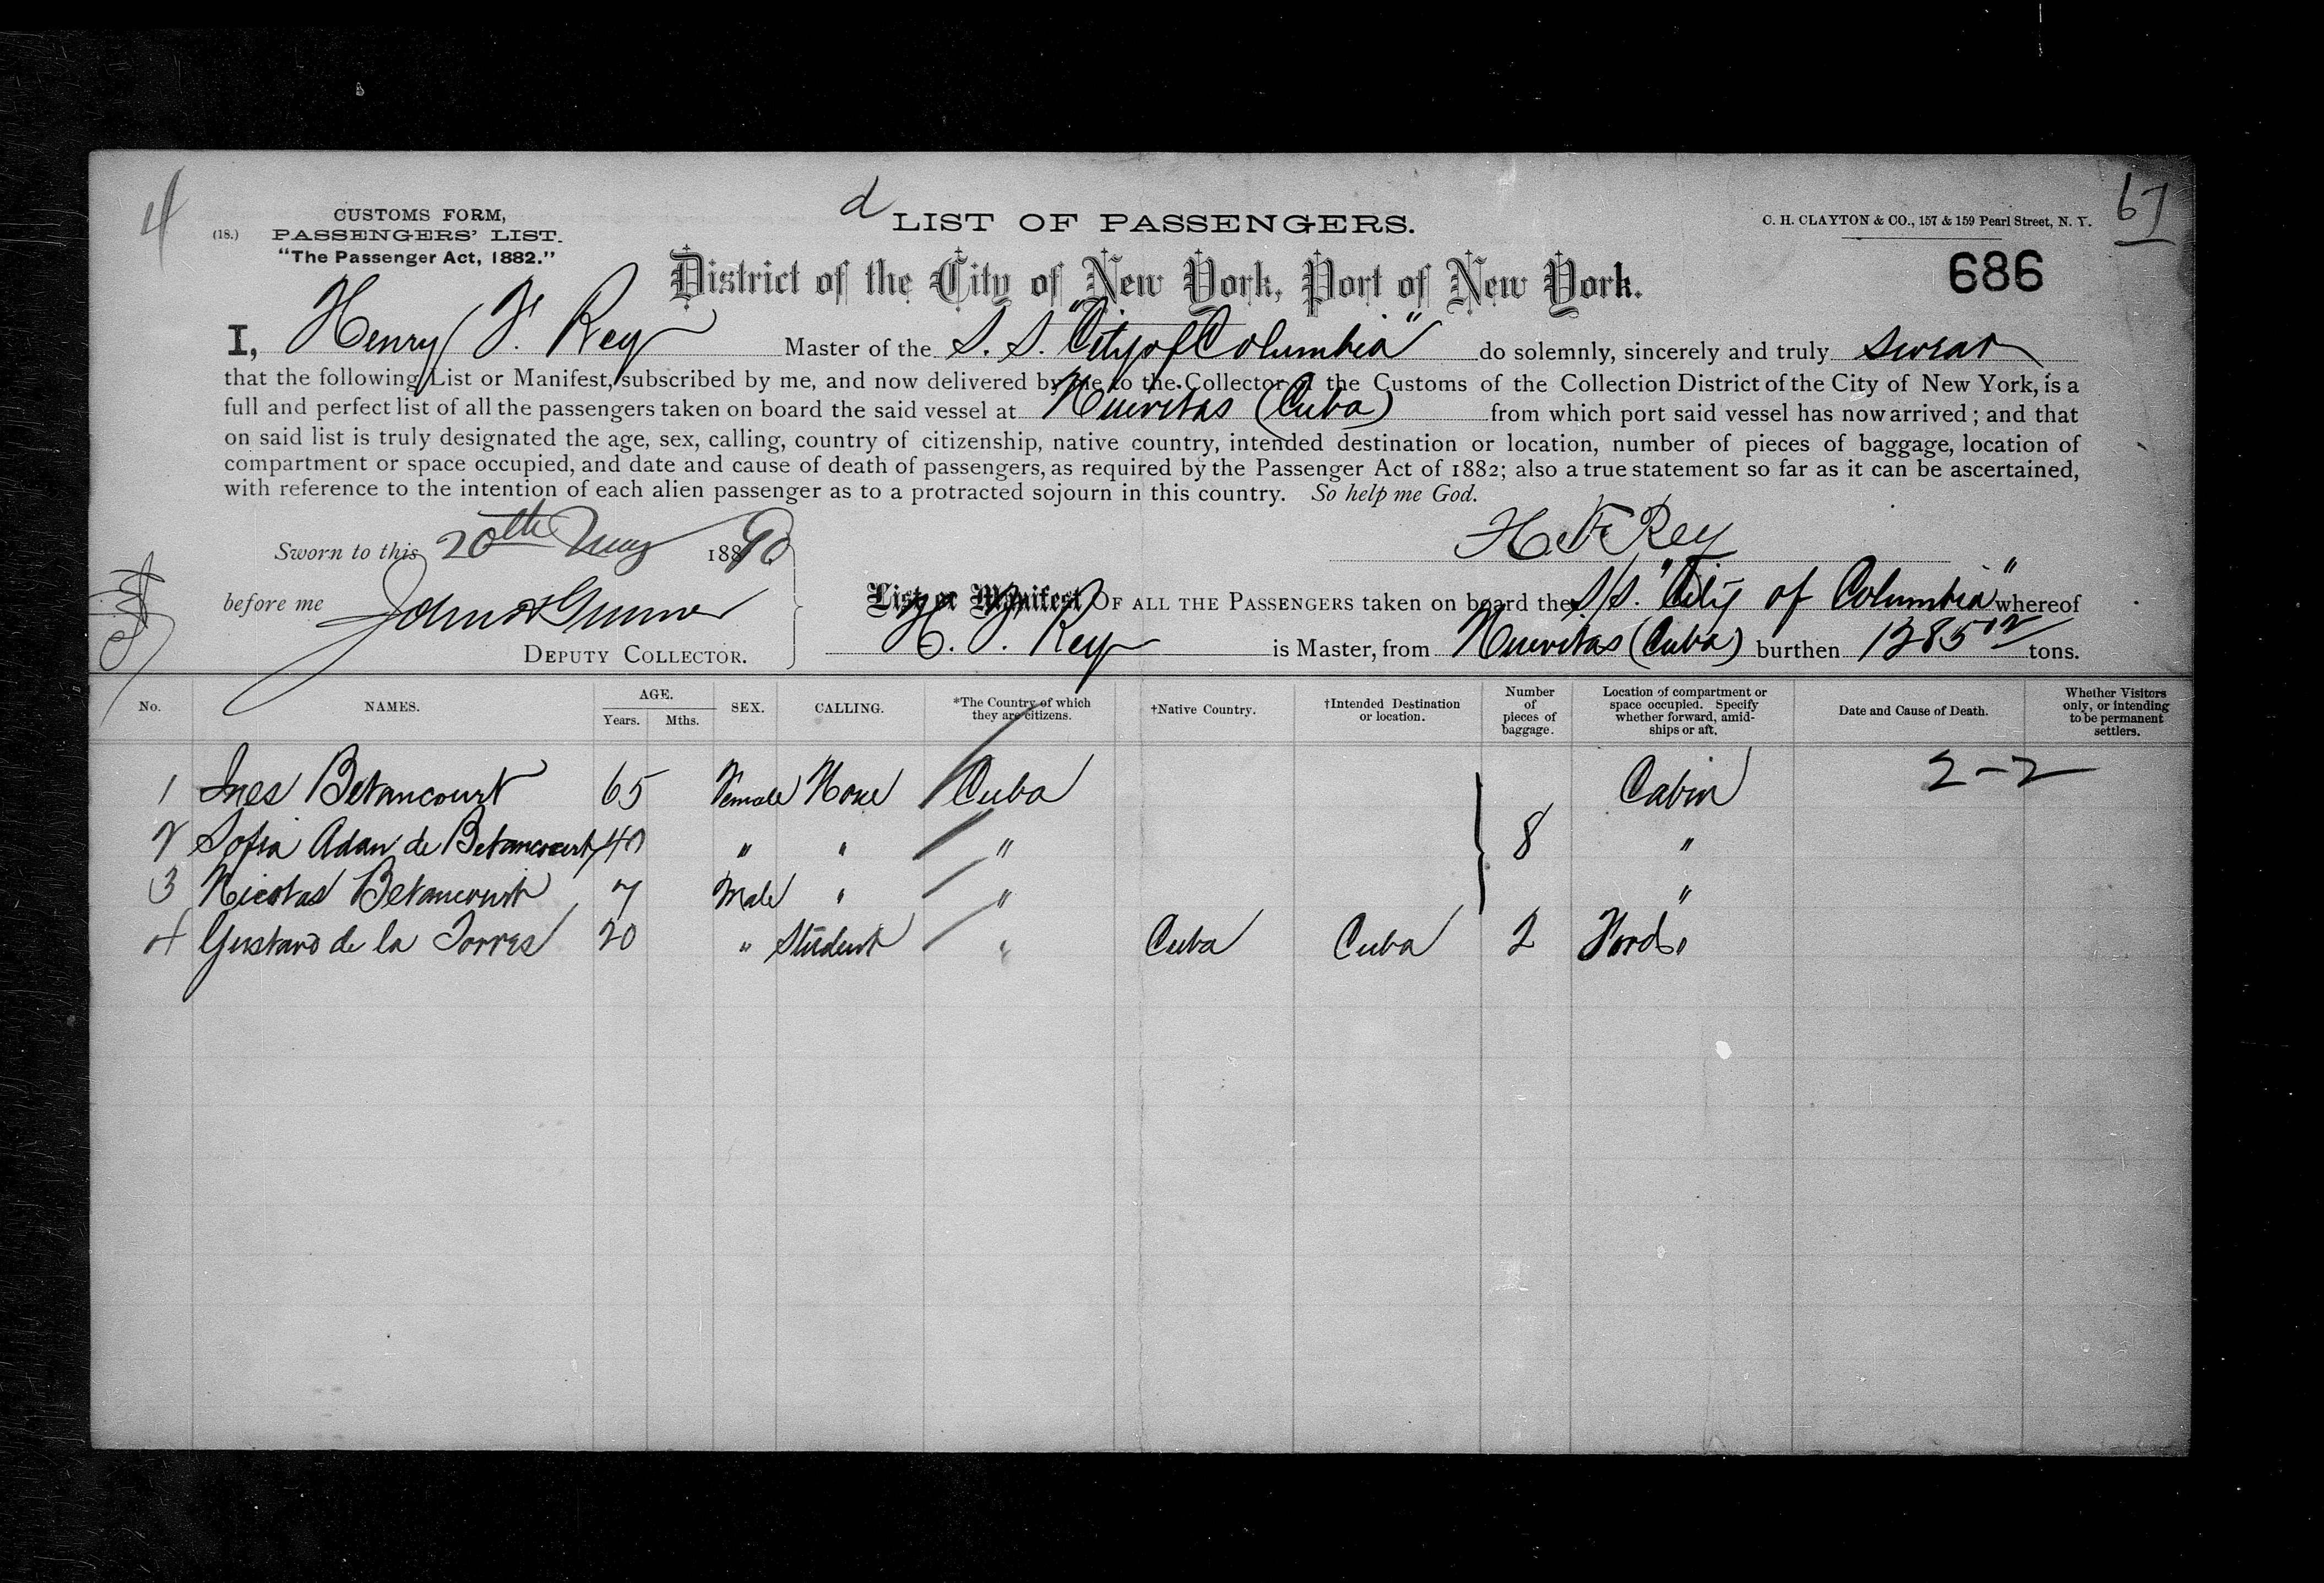 4
d
67
CUSTOMS FORM,
(18.) PASSENGERS' LIST.
"The Passenger Act, 1882."
LIST OF PASSENGERS.
C. H. CLAYTON & CO., 157 & 159 Pearl Street, N. Y.
District of the City of New York, Port of New York.
686
I, Henry F. Rey Master of the S. S. "City of Columbia" do solemnly, sincerely and truly swear
that the following List or Manifest, subscribed by me, and now delivered by me to the Collector of the Customs of the Collection District of the City of New York, is a
full and perfect list of all the passengers taken on board the said vessel at Nuevitas (Cuba) from which port said vessel has now arrived; and that
on said list is truly designated the age, sex, calling, country of citizenship, native country, intended destination or location, number of pieces of baggage, location of
compartment or space occupied, and date and cause of death of passengers, as required by the Passenger Act of 1882; also a true statement so far as it can be ascertained,
with reference to the intention of each alien passenger as to a protracted sojourn in this country. So help me God.
H. F. Rey
Sworn to this 20th May 1890
before me
DEPUTY COLLECTOR.
List or Manifest OF ALL THE PASSENGERS taken on board the S/S. "City of Columbia" whereof
H. F. Rey is Master, from Nuevitas (Cuba) burthen 1285 12 tons.
No. NAMES. AGE. Years. Mths. SEX. CALLING. *The Country of which they are citizens. †Native Country. †Intended Destination or location. Number of pieces of baggage. Location of compartment or space occupied. Specify whether forward, amidships or aft. Date and Cause of Death. Whether Visitors only, or intending to be permanent settlers.
1 Ines Betancourt 65 Female None Cuba Cabin 2-2
2 Sofia Adan de Betancourt 40 " " " 8 "
3 Nicolas Betancourt 7 Male " " "
4 Gustavo de la Torres 20 " Student " Cuba Cuba 2 Forwd.